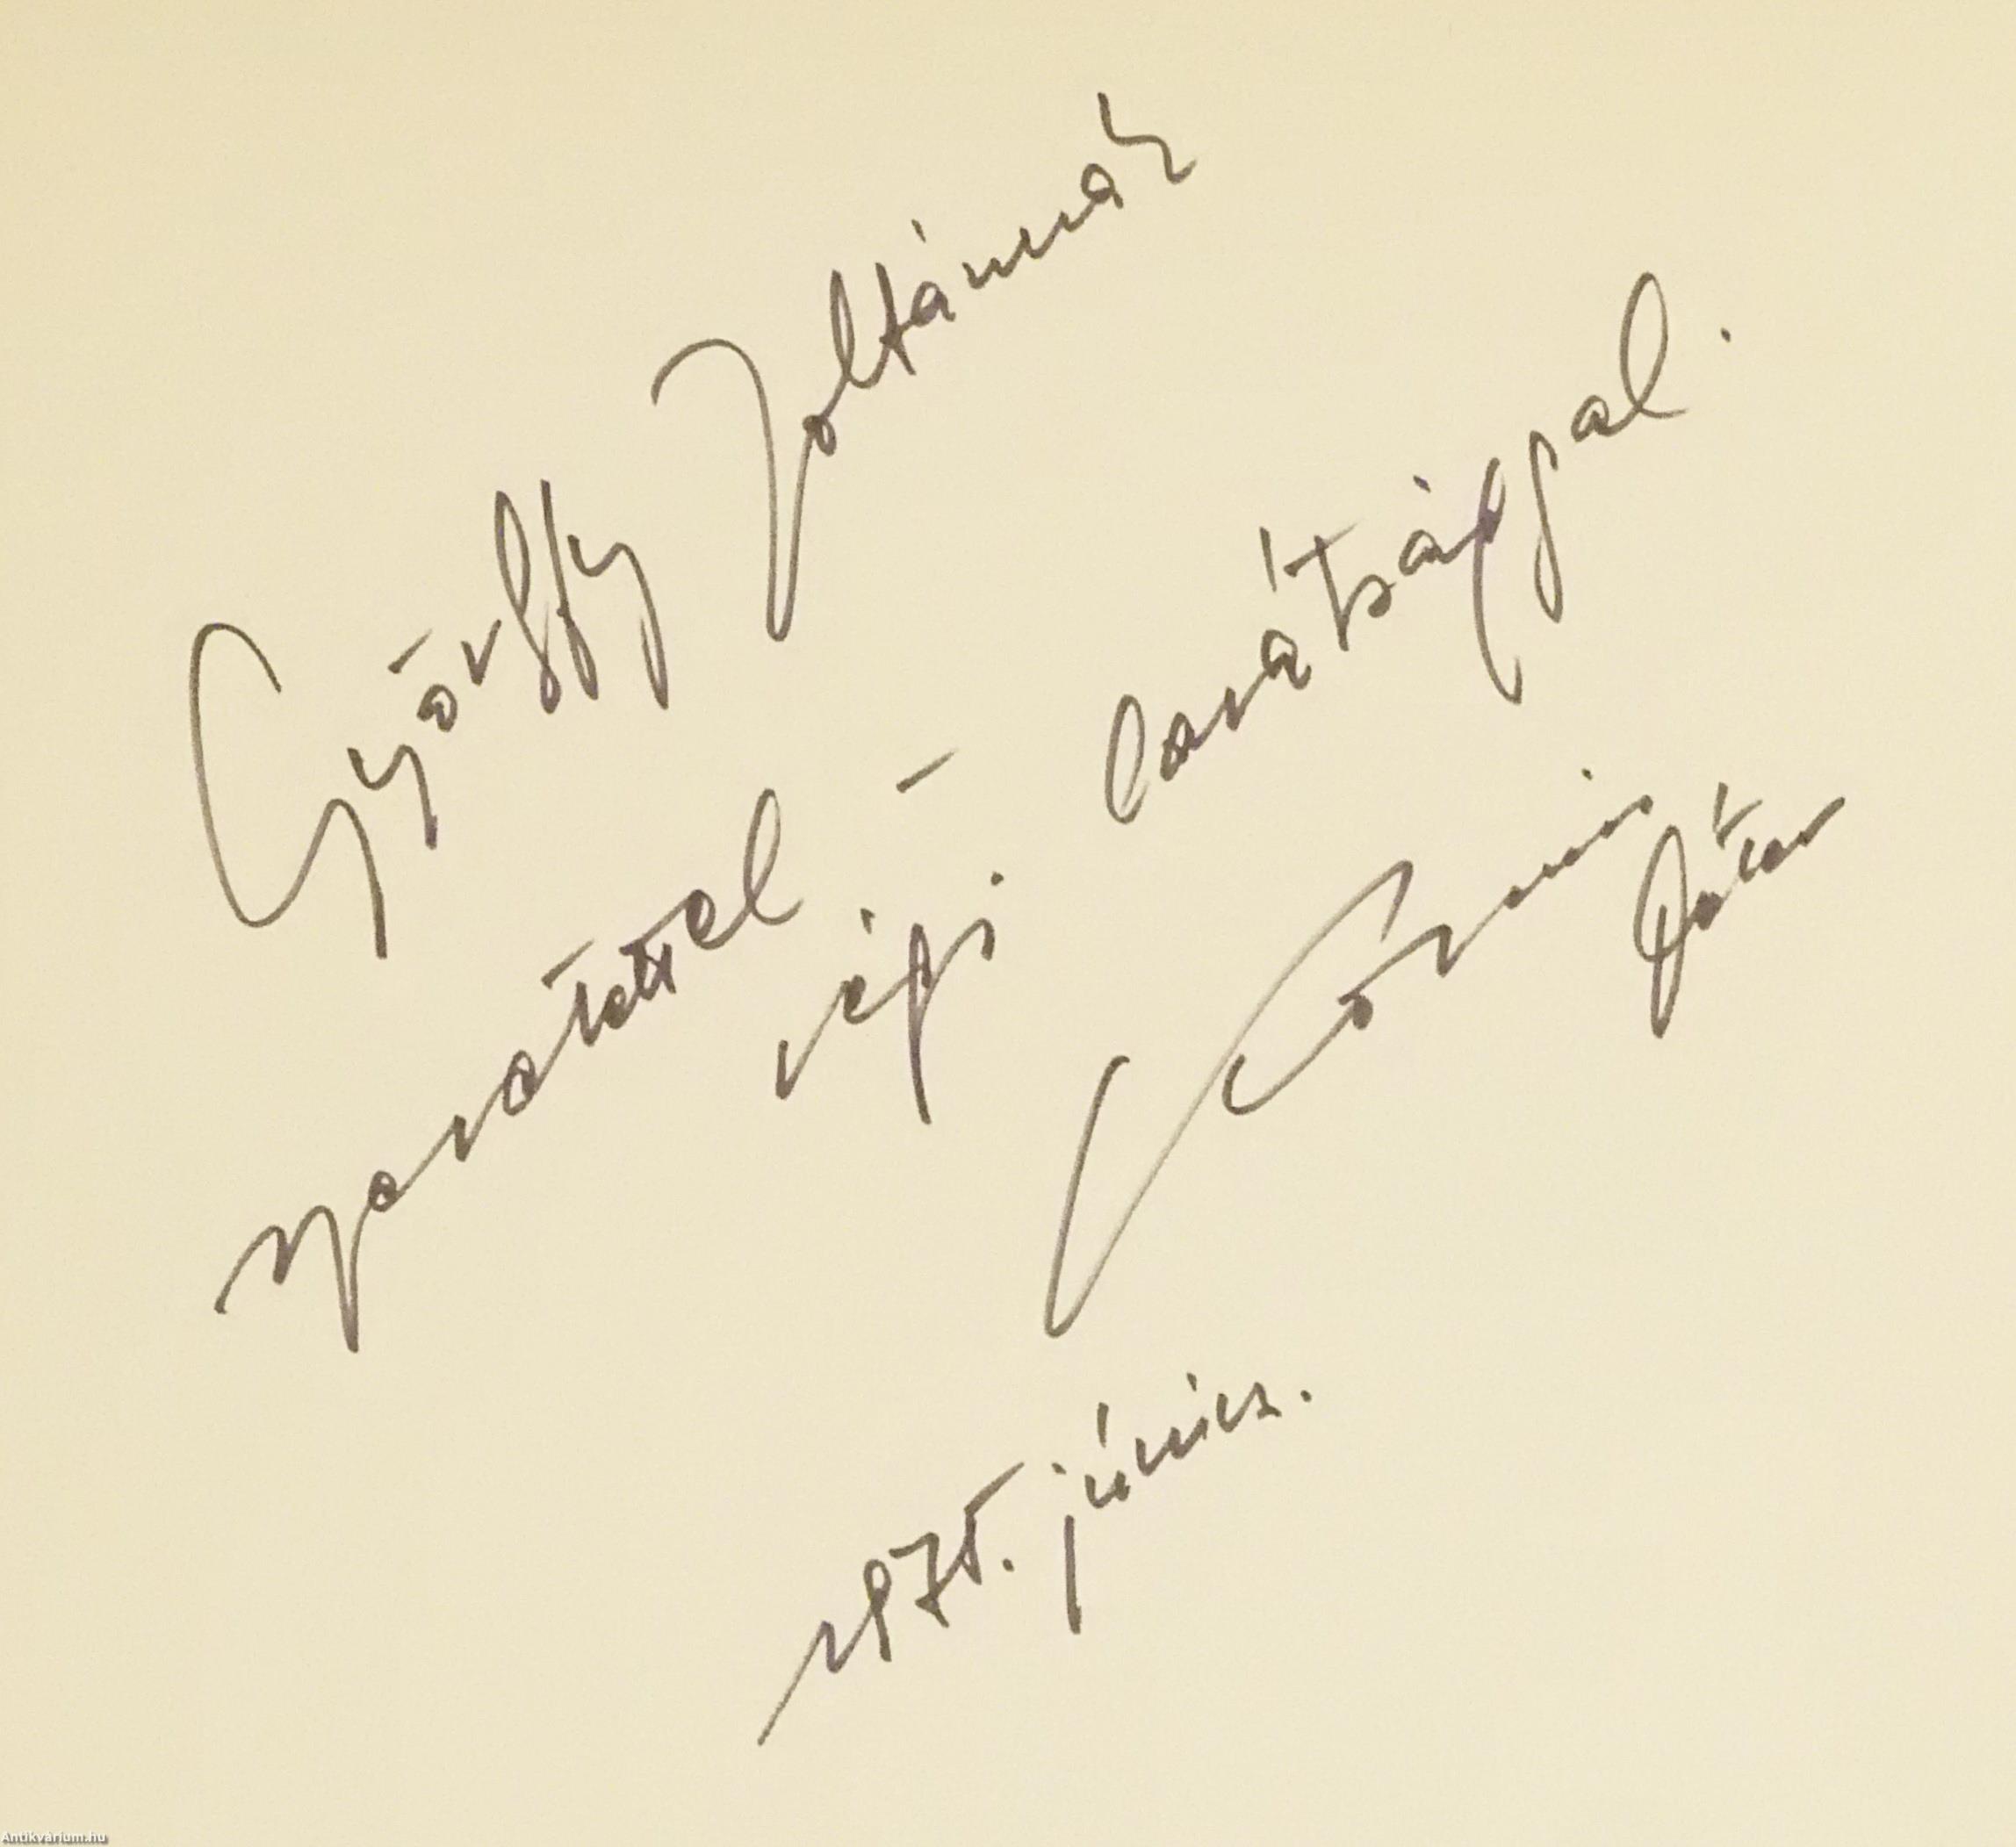 Győrffy Zoltánnak
szeretettel –
régi barátsággal.
Kormos
1975. június.
Antikvárium.hu